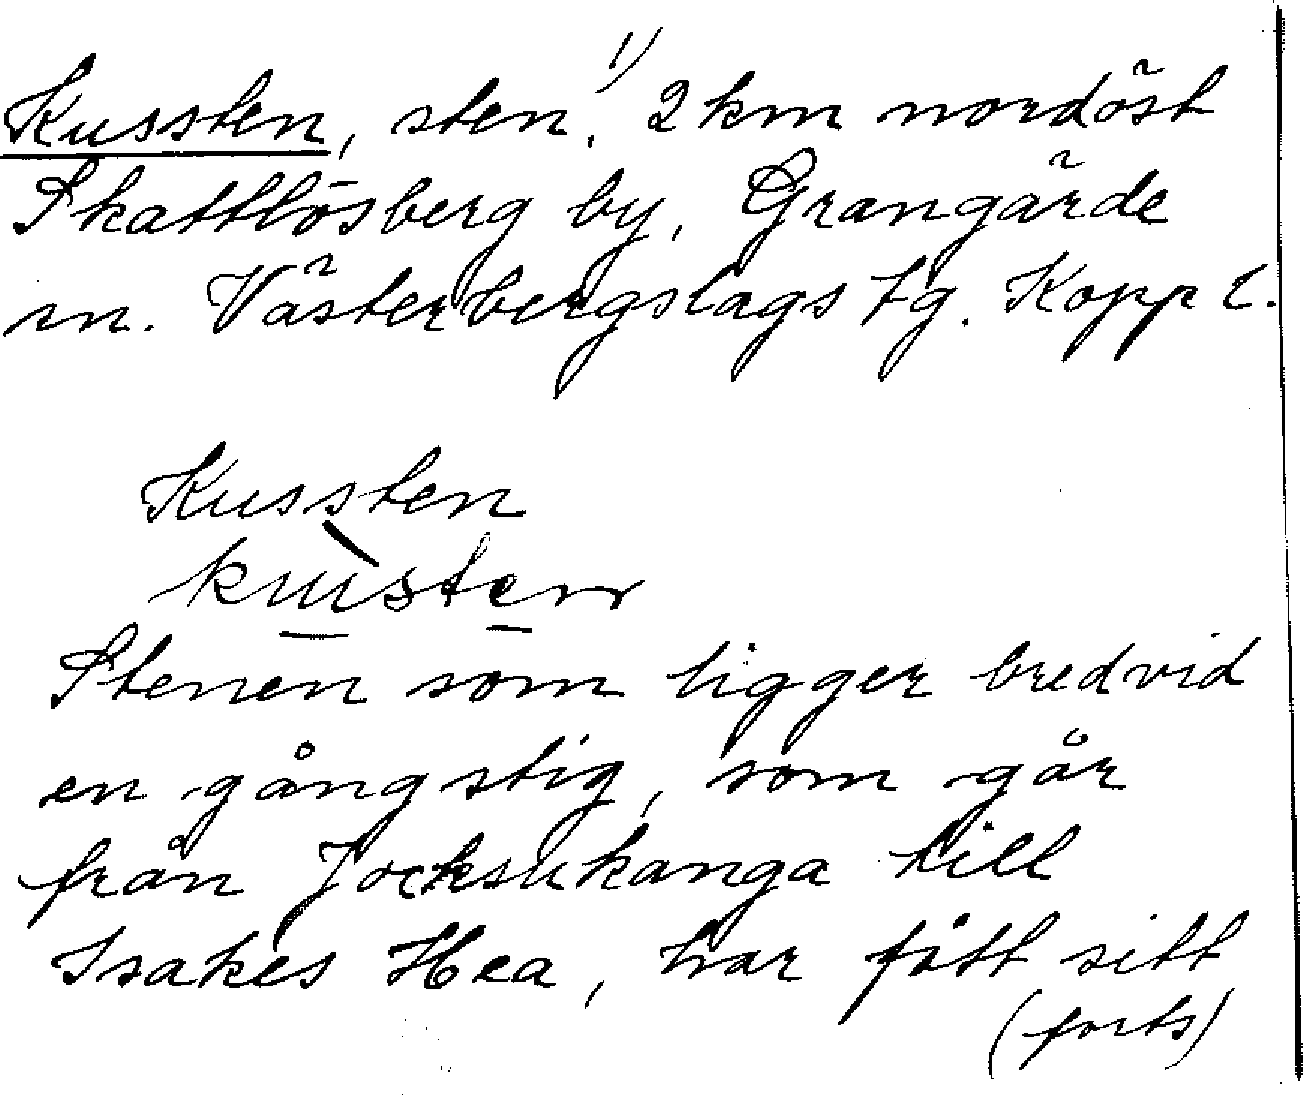 Kussten, sten.¹⁾ 2 km nordöst
Skattlösberg by, Grangärde
sn. Västerbergslags tg. Kopp l.
Kussten
Stenen som ligger bredvid
en gångstig, som går
från Jocksukanga till
Isakes Hea, har fått sitt
(forts)